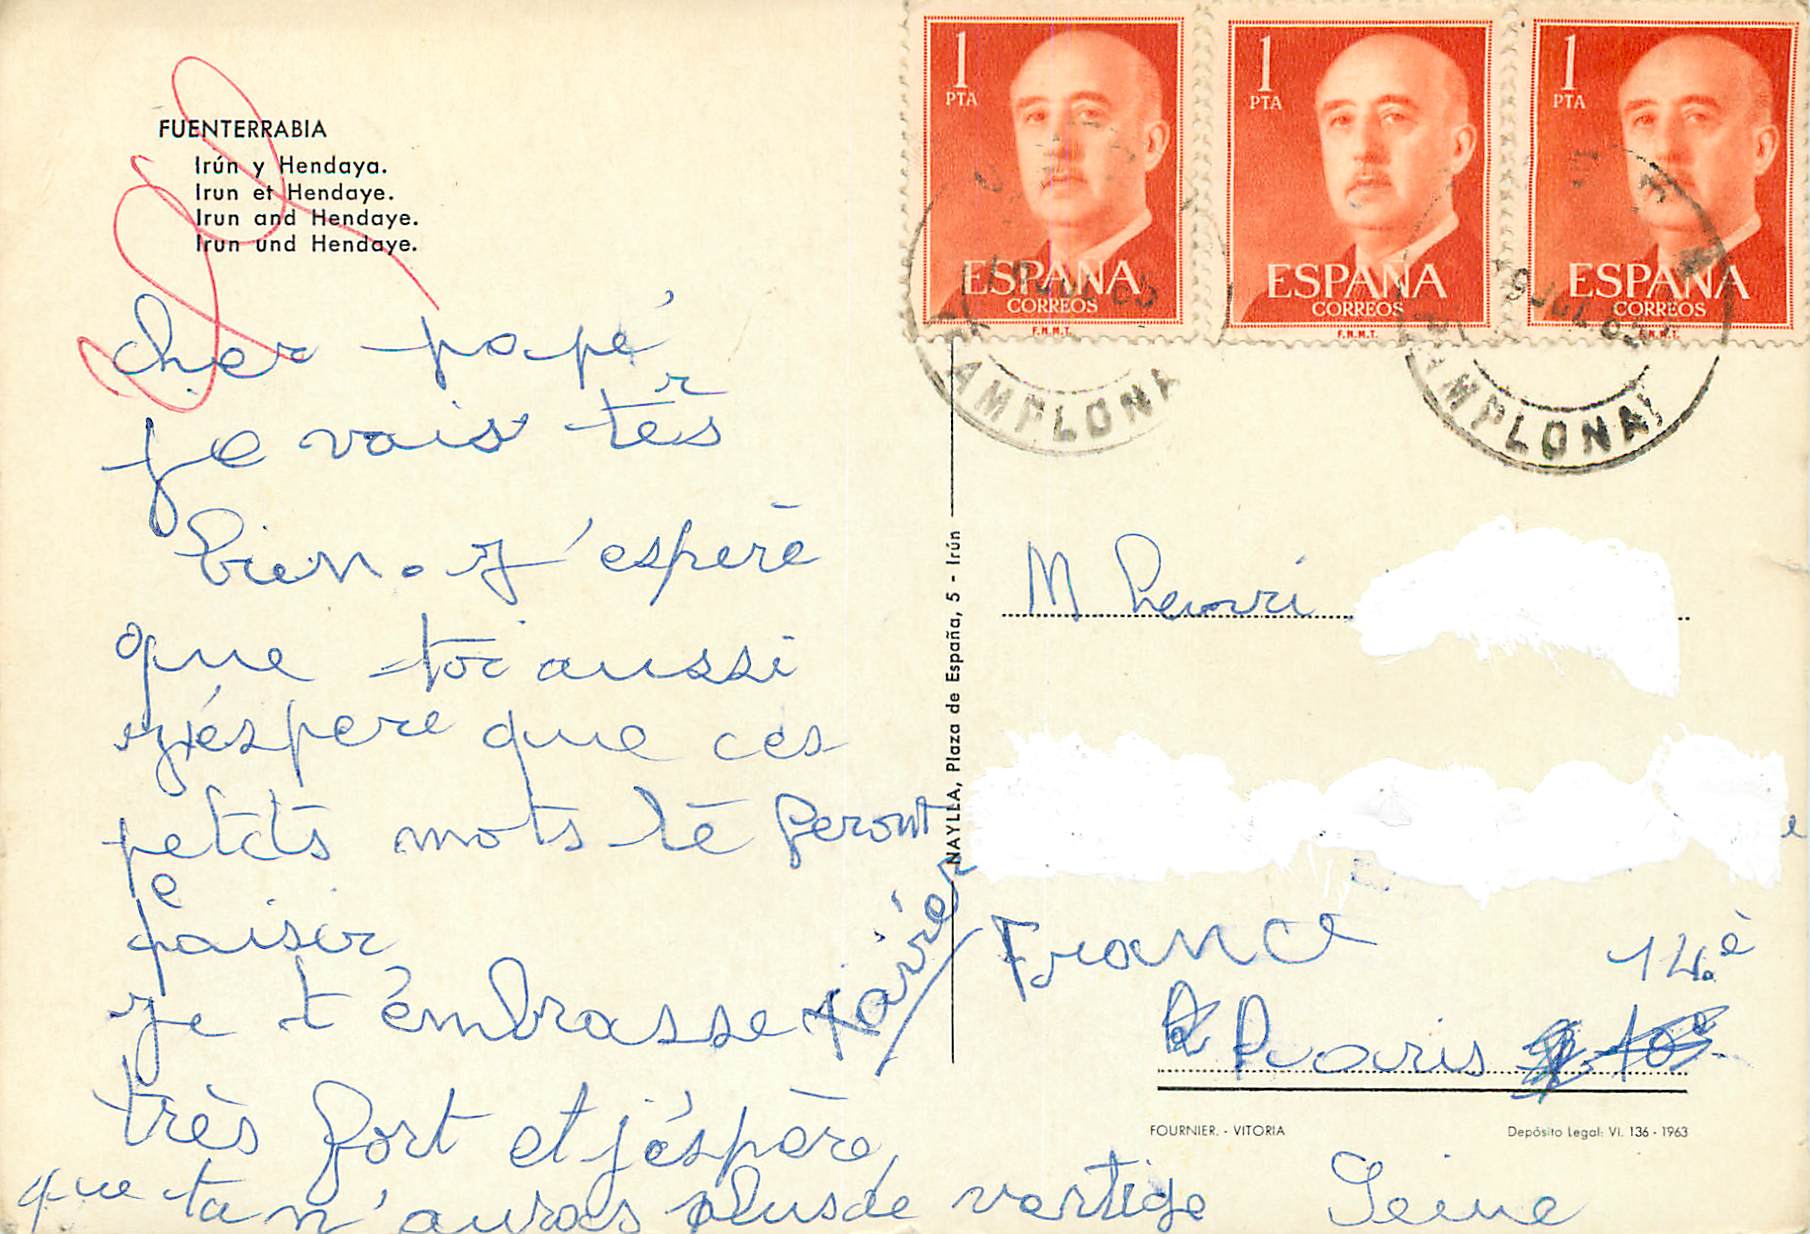 FUENTERRABIA
Irún y Hendaya.
Irun et Hendaye.
Irun and Hendaye.
Irun und Hendaye.
cher papé
je vais tès
r
bien. J'espère
que toi aussi
j'éspere que ces
petits mots te feront
paisir
je t'émbrasse Xavier
très fort et j'éspère,
que ta n'auras plus de vertige
1 PTA
ESPAÑA
CORREOS
F.N.M.T.
1 PTA
ESPAÑA
CORREOS
F.N.M.T.
1 PTA
ESPAÑA
CORREOS
F.N.M.T.
PAMPLONA
PAMPLONA
NAYLLA, Plaza de España, 5 - Irún
M Henri
France
14è
Paris
FOURNIER. - VITORIA
Depósito Legal: VI. 136 - 1963
Seine